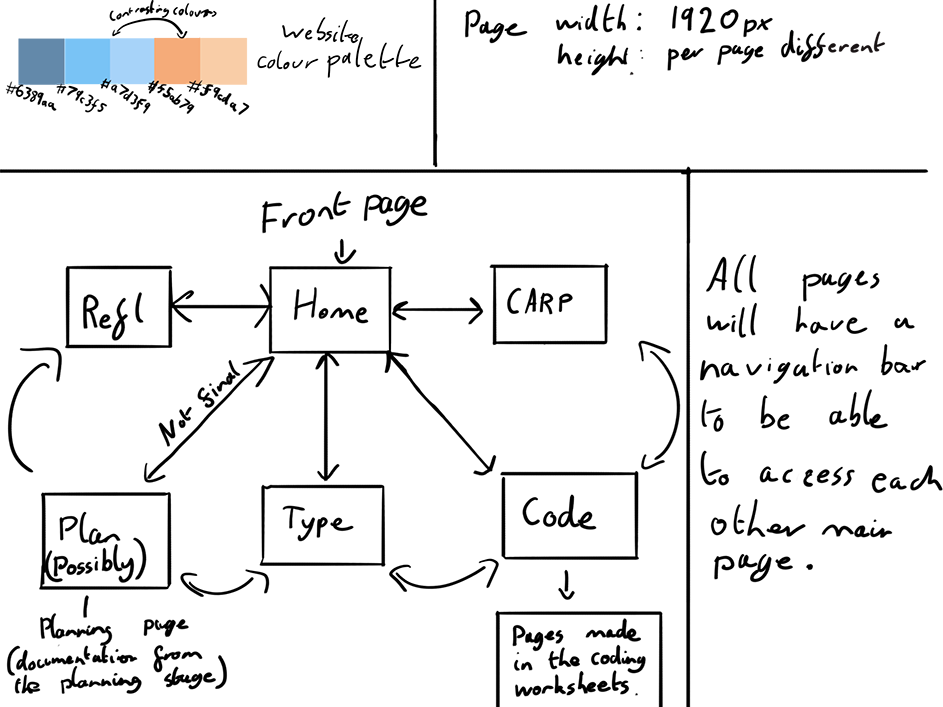 Contrasting colours
website
colour palette
#6389aa #79c3f5 #a7d3f9 #f5ab79 #f9cda7
Page width: 1920px
height: per page different
Front page
Refl
Home
CARP
Not final
Plan
(Possibly)
Type
Code
Planning page
(documentation from
the planning stage)
Pages made
in the coding
worksheets.
All pages
will have a
navigation bar
to be able
to access each
other main
page.